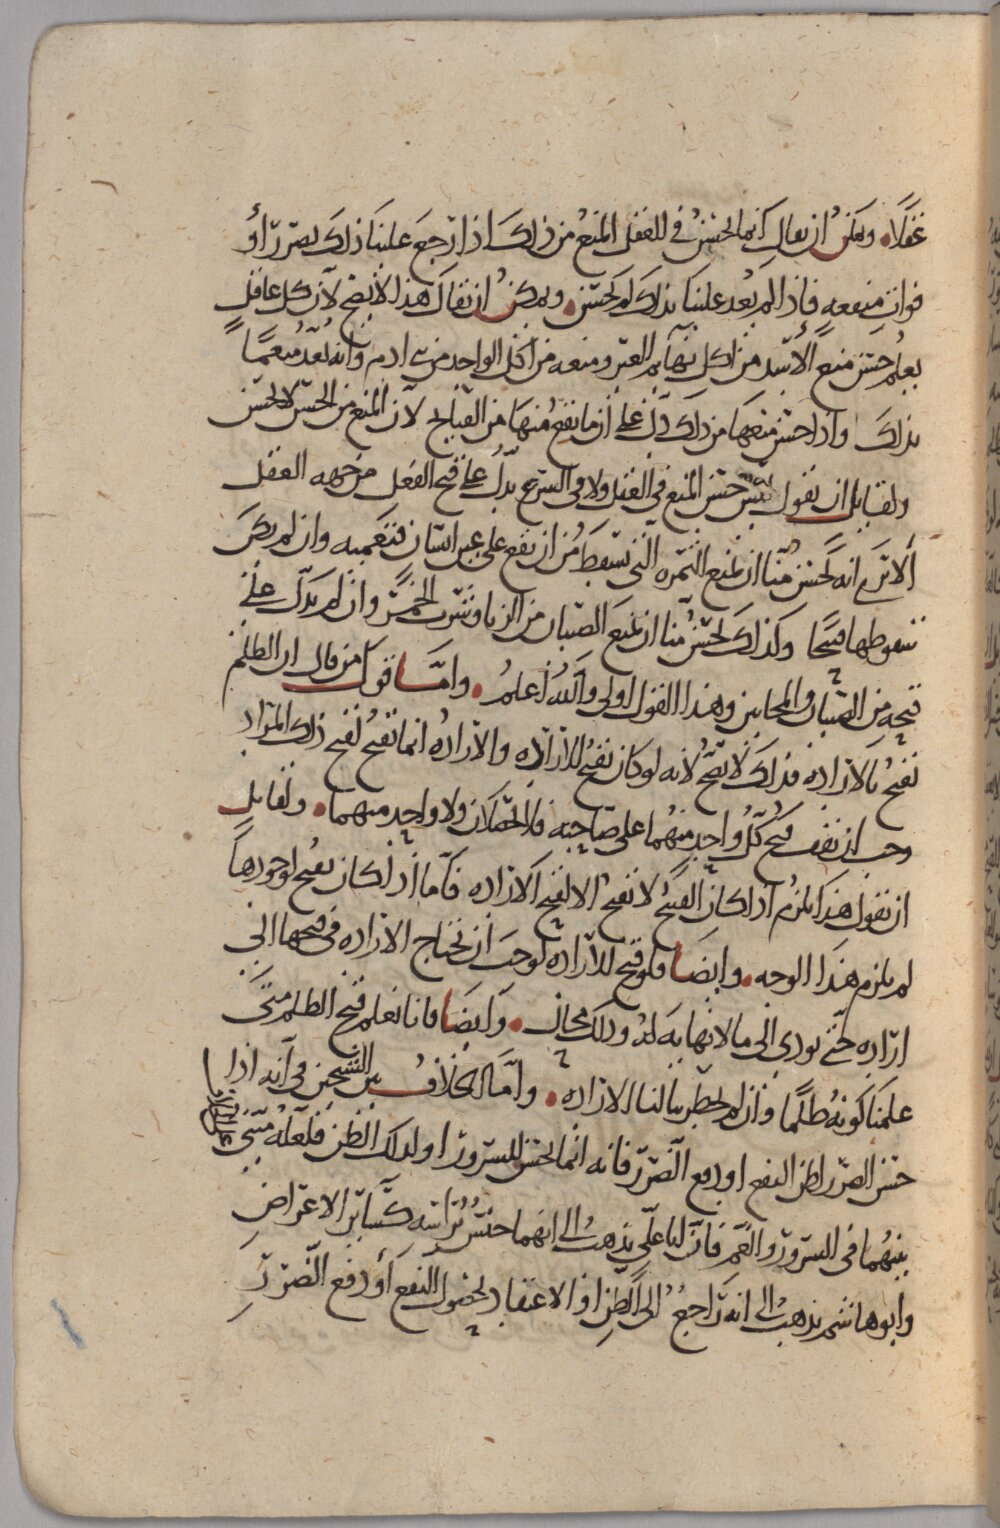 عقلًا، ويمكن ان يقال انما يحسن في العقل المنع من ذلك اذا رجع علينا ذلك بضرر او
فوات منفعه فاذا لم يعد علينا بذلك لم يحسن، ويمكن ان يقال هذا لا يصح لان كل عاقل
يعلم حسن منع الاسد من اكل بهايم الغير ومنعه من اكل الواحد من بني ادم وانه يعد منعمًا
بذلك واذا حسن منعها من ذلك دل على ان ما يقع منها من القبايح لان المنع من الحسن لا يحسن
ولقايل ان يقول ليس حسن المنع في العقل ولا في الشرع يدل على قبح الفعل من جهه العقل
الا ترى انه يحسن منا ان نمنع الثمره التي تسقط من ان تقع على عين انسان فتعميه وان لم يكن
سقوطها قبيحا وكذلك يحسن منا ان نمنع الصبيان من الزنا وشرب الخمر وان لم يدل على
قبحه من الصبيان والمجانين وهذا القول اولى والله اعلم، واما قول من قال ان الظلم
يقبح بالاراده فذلك لا يصح لانه لو كان يقبح للاراده والاراده انما تقبح لقبح ذلك المراد
وجب ان يقف قبح كل واحد منهما على صاحبه فلا يحصلان ولا واحد منهما، ولقايل
ان يقول هذا يلزم اذا كان القبيح لا يقبح الا لقبح الاراده فاما اذا كان يقبح لوجودها
لم يلزم هذا الوجه، وايضا فلو قبح للاراده لوجب ان تحتاج الاراده في قبحها الى
اراده حتى يودي الى ما لا نهايه له وذلك محال، وايضا فانا نعلم قبح الظلم متى
علمنا كونه ظلمًا وان لم يخطر ببالنا الاراده، واما الخلاف بين الشيخين في انه اذا
حسن الضرر لظن النفع او دفع الضرر فانه انما يحسن للسرور او لذلك الظن فلعله مبني
بينهما في السرور والغم فان ابا علي يذهب الى انهما جنس براسه كساير الاعراض
وابو هاشم يذهب الى انه راجع الى الظن او الاعتقاد لحصول النفع او دفع الضرر